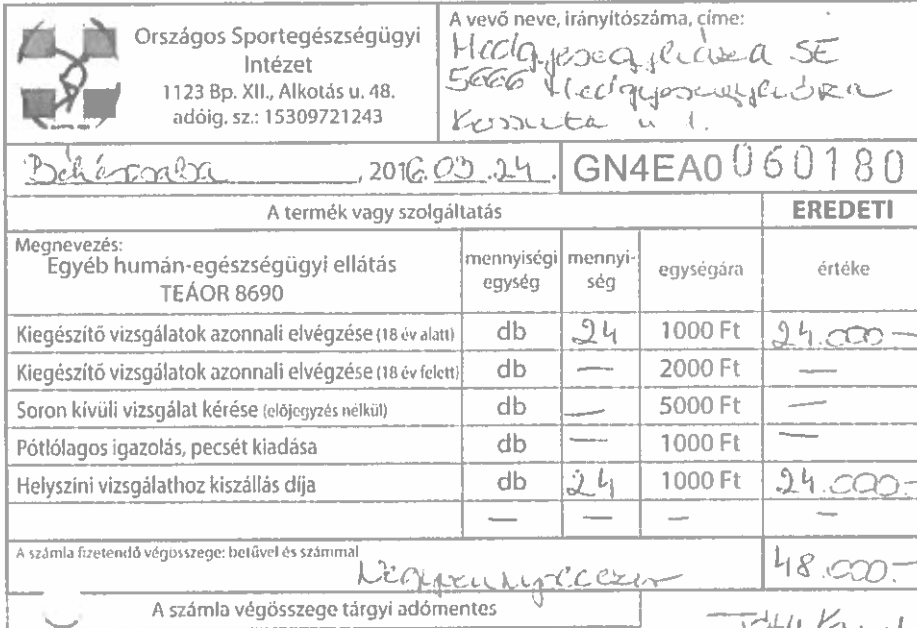 Országos Sportegészségügyi
Intézet
1123 Bp. XII., Alkotás u. 48.
adóig. sz.: 15309721243
A vevő neve, irányítószáma, címe:
Medgyesegyháza SE
5666 Medgyesegyháza
Kossuth u 1.
Békéscsaba, 2016.03.24.
GN4EA0 060180
A termék vagy szolgáltatás
EREDETI
Megnevezés:
Egyéb humán-egészségügyi ellátás
TEÁOR 8690
mennyiségi egység
mennyi-
ség
egységára
értéke
Kiegészítő vizsgálatok azonnali elvégzése (18 év alatt) db 24 1000 Ft 24.000 —
Kiegészítő vizsgálatok azonnali elvégzése (18 év felett) db — 2000 Ft —
Soron kívüli vizsgálat kérése (előjegyzés nélkül) db — 5000 Ft —
Pótlólagos igazolás, pecsét kiadása db — 1000 Ft —
Helyszíni vizsgálathoz kiszállás díja db 24 1000 Ft 24.000-
— — — —
A számla fizetendő végösszege: betűvel és számmal
Negyvennyolcezer
48.000.-
A számla végösszege tárgyi adómentes